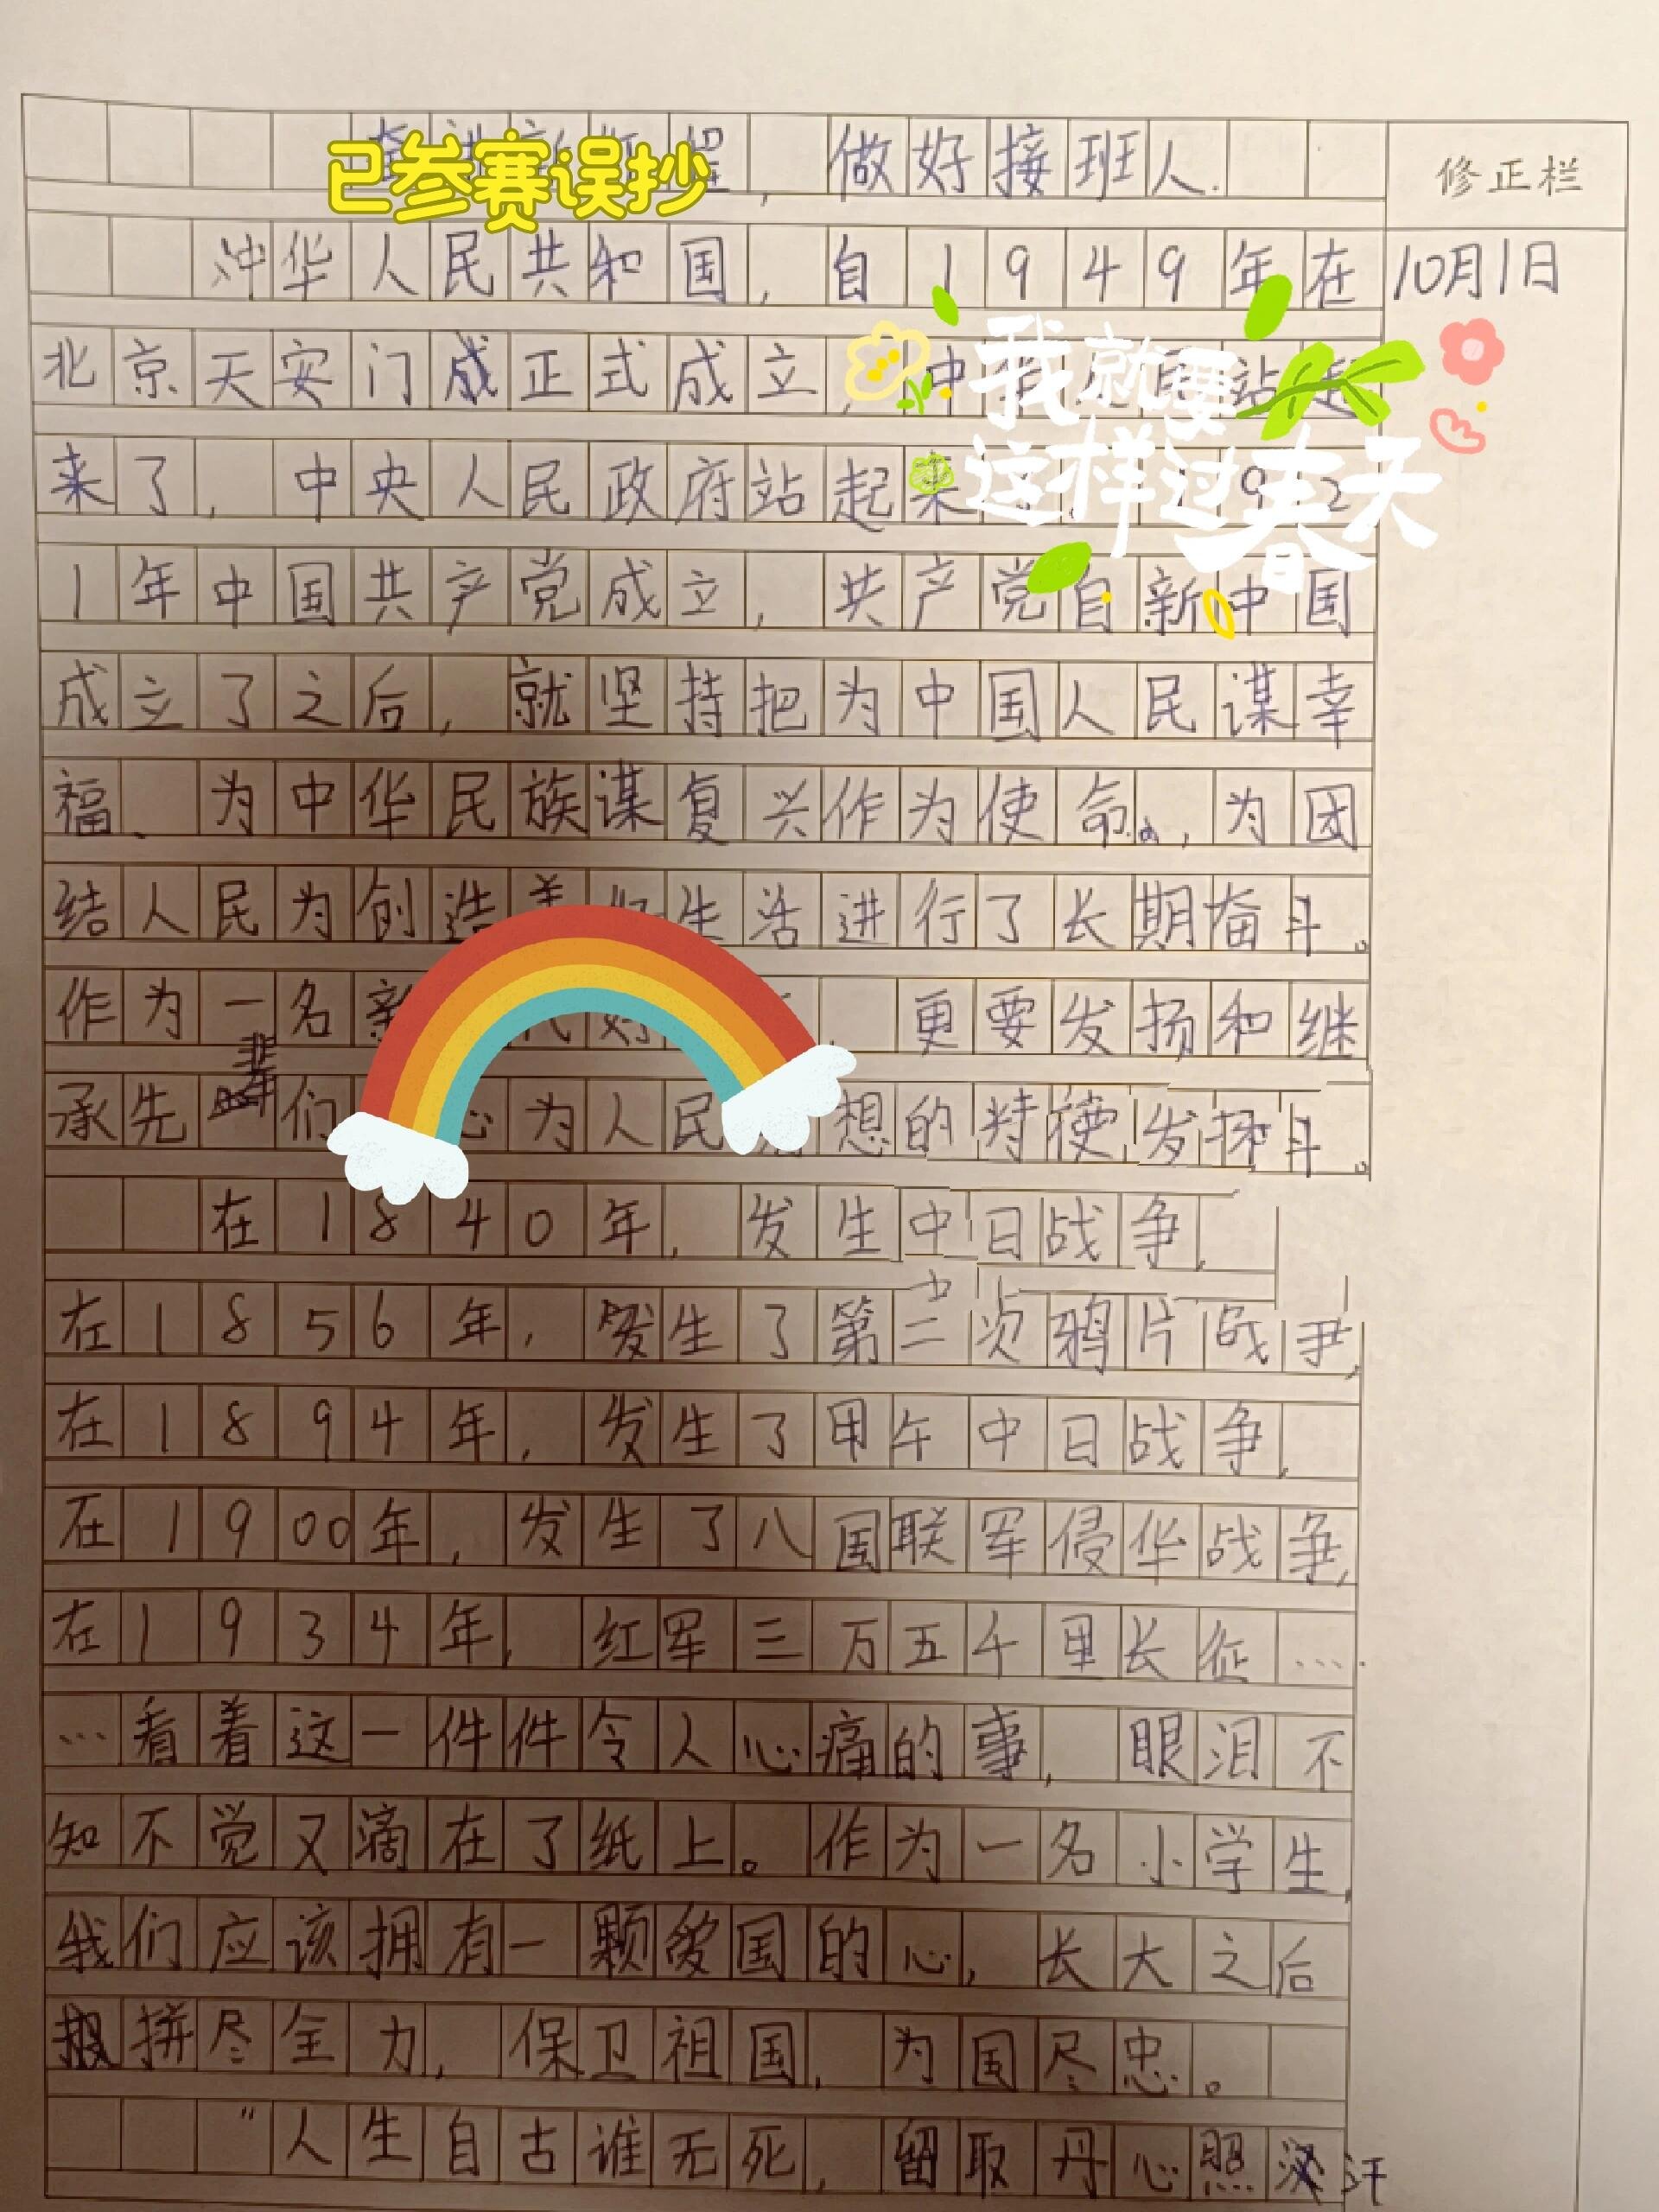 已参赛误抄
，做好接班人.
修正栏
中华人民共和国，自1949年在
10月1日
北京天安门成正式成立，中
我就要
这样过春天
来了，中央人民政府站起来 92
1年中国共产党成立，共产党自新中国
成立了之后，就坚持把为中国人民谋幸
福、为中华民族谋复兴作为使命，为团
结人民为创造 生活进行了长期奋斗。
作为一名新 更要发扬和继
承先辈们 心为人民 想的 发扬斗。
在1840年，发生中日战争，
在1856年，发生了第二次鸦片战争，
在1894年，发生了甲午中日战争，
在1900年，发生了八国联军侵华战争，
在1934年，红军三万五千里长征…
…看着这一件件令人心痛的事，眼泪不
知不觉又滴在了纸上。作为一名小学生，
我们应该拥有一颗爱国的心，长大之后
拼尽全力，保卫祖国，为国尽忠。
"人生自古谁无死，留取丹心照汗